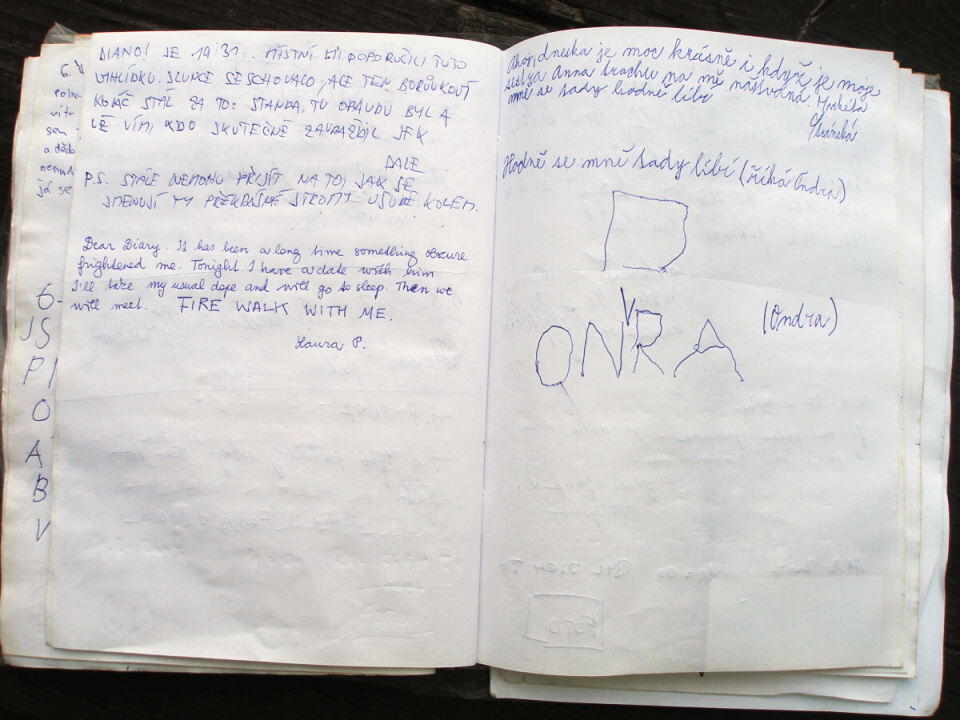 DIANO! JE 19:31. MÍSTNÍ MI DOPORUČILI TUTO
VYHLÍDKU. SLUNCE SE SCHOVALO, ALE TEN BORŮVKOVÝ
KOLÁČ STÁL ZA TO. STANDA, TU OBAVDU BYL A
UŽ VÍM, KDO SKUTEČNĚ ZAVRAŽDIL JFK.
DALE
P.S. STÁLE NEMOHU PŘIJÍT NA TO, JAK SE
JMENUJÍ TY PŘEKRÁSNÉ STROMY VŠUDE KOLEM.
Dear Diary. It has been a long time something obscure
frightened me. Tonight I have a date with him.
I'll take my usual dope and will go to sleep. Then we
will meet. FIRE WALK WITH ME.
Laura P.
6.
já se
6-
JS
PI
O
A
B
V
Ahoj, dneska je moc krásně i když je moje
sestra Anna trochu na mě naštvaná. Markéta
mně se sady hodně líbí
Hodně se mně sady líbí (říká Ondra)
D
V
ONRA (Ondra)